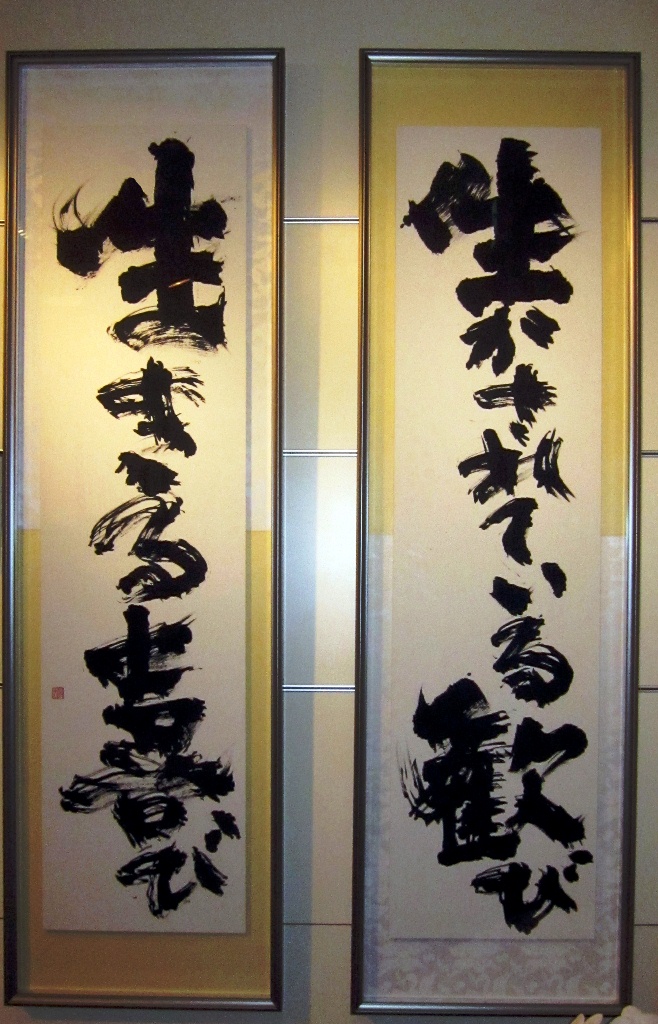 生かされている歓び
生きる喜び